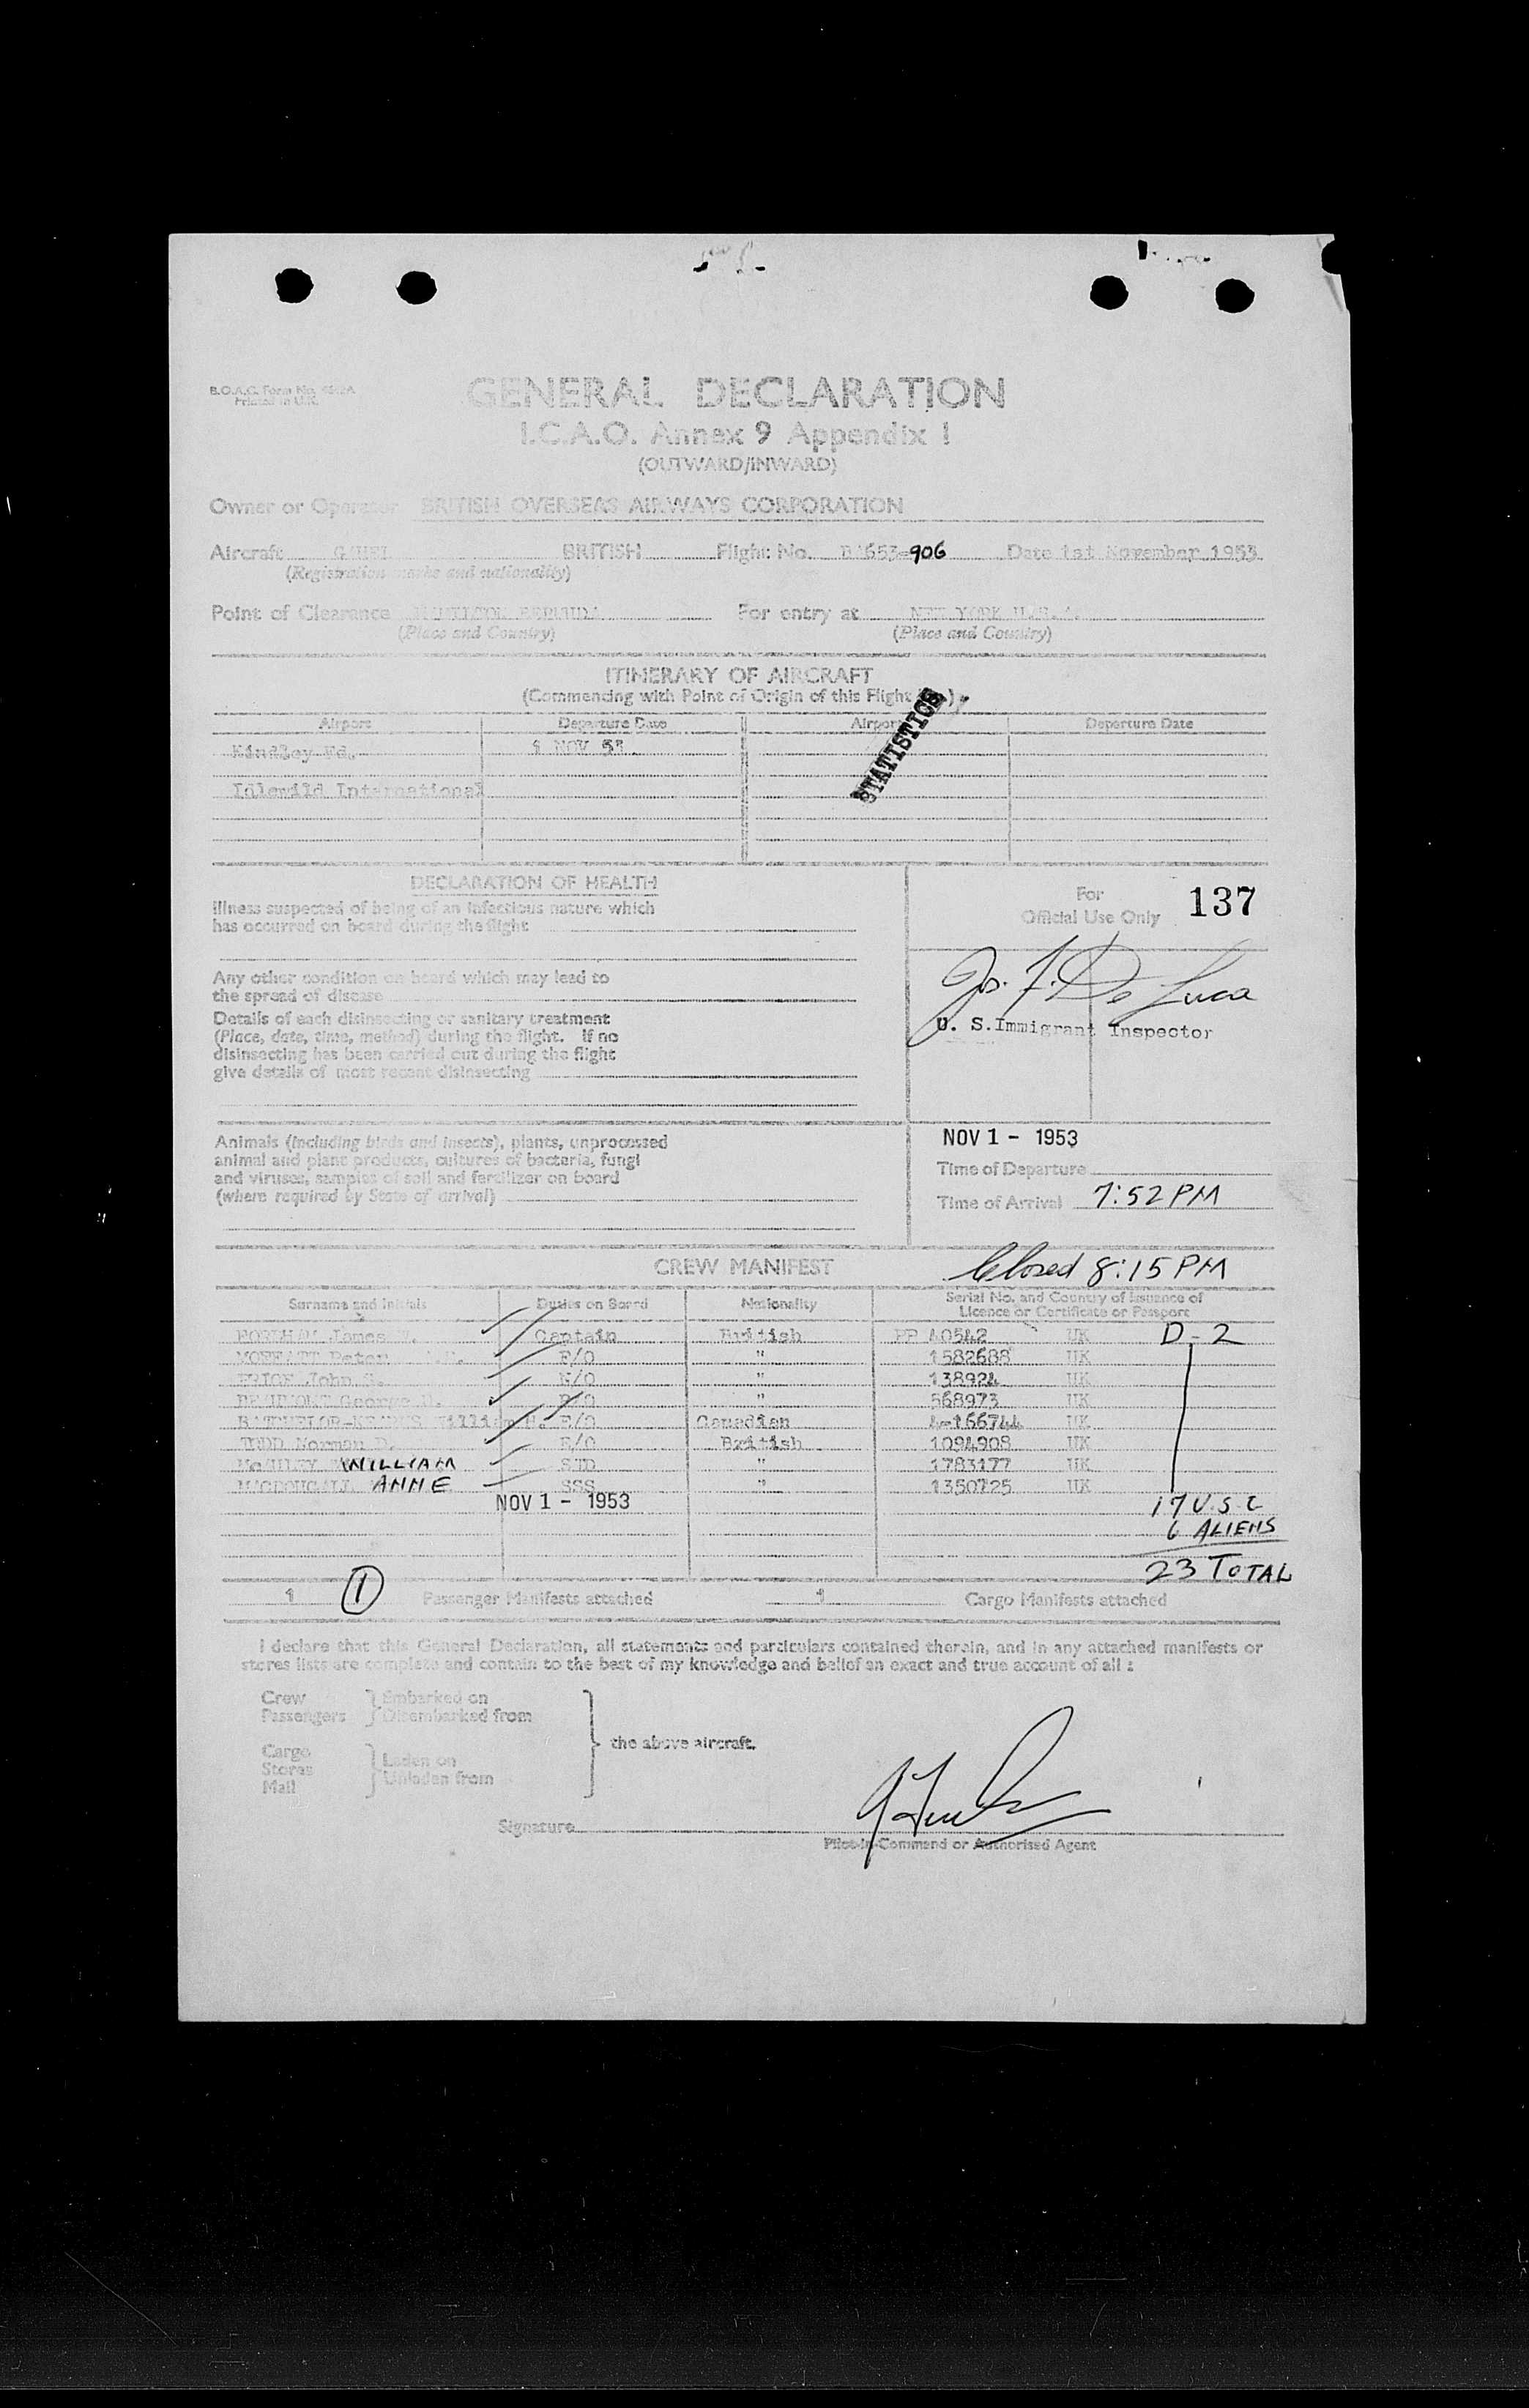 B.O.A.C. Form No.
Printed in U.K.
GENERAL DECLARATION
I.C.A.O. Annex 9 Appendix 1
(OUTWARD/INWARD)
Owner or Operator BRITISH OVERSEAS AIRWAYS CORPORATION
Aircraft BRITISH Flight No. BA653-906 Date 1st November 1953
(Registration marks and nationality)
Point of Clearance HAMILTON BERMUDA For entry at NEW YORK U.S.A.
(Place and Country) (Place and Country)
ITINERARY OF AIRCRAFT
(Commencing with Point of Origin of this Flight
STATISTICS
Airport Departure Date Airport Departure Date
Kindley Fd. 1 NOV 53
Idlewild International
DECLARATION OF HEALTH
For
Official Use Only 137
Illness suspected of being of an infectious nature which
has occurred on board during the flight
Any other condition on board which may lead to
the spread of disease
Details of each disinsecting or sanitary treatment
(Place, date, time, method) during the flight. If no
disinsecting has been carried out during the flight
give details of most recent disinsecting
Jos. F. De Luca
U. S. Immigrant Inspector
Animals (including birds and insects), plants, unprocessed
animal and plant products, cultures of bacteria, fungi
and viruses, samples of soil and fertilizer on board
(where required by State of arrival)
NOV 1 - 1953
Time of Departure
Time of Arrival 7:52 PM
CREW MANIFEST Closed 8:15 PM
Surname and initials Duties on Board Nationality Serial No. and Country of Issuance of
Licence or Certificate or Passport
James Captain British PP A0542 UK D-2
MOFFATT Peter F/O " 1582688 UK
PRICE John S. N/O " 138924 UK
BEAUMONT George R/O " 568973 UK
William H. E/O Canadian 4-166744 UK
TODD Norman D. E/O British 1094908 UK
McAULEY WILLIAM STD " 1783177 UK
MACDOUGALL ANNE SSS " 1350725 UK
NOV 1 - 1953
17 U.S.C
6 ALIENS
23 TOTAL
1 (1) Passenger Manifests attached 1 Cargo Manifests attached
I declare that this General Declaration, all statements and particulars contained therein, and in any attached manifests or
stores lists are complete and contain to the best of my knowledge and belief an exact and true account of all :
Crew Embarked on
Passengers Disembarked from
the above aircraft.
Cargo
Stores Laden on
Mail Unladen from
Signature
Pilot-in-Command or Authorised Agent